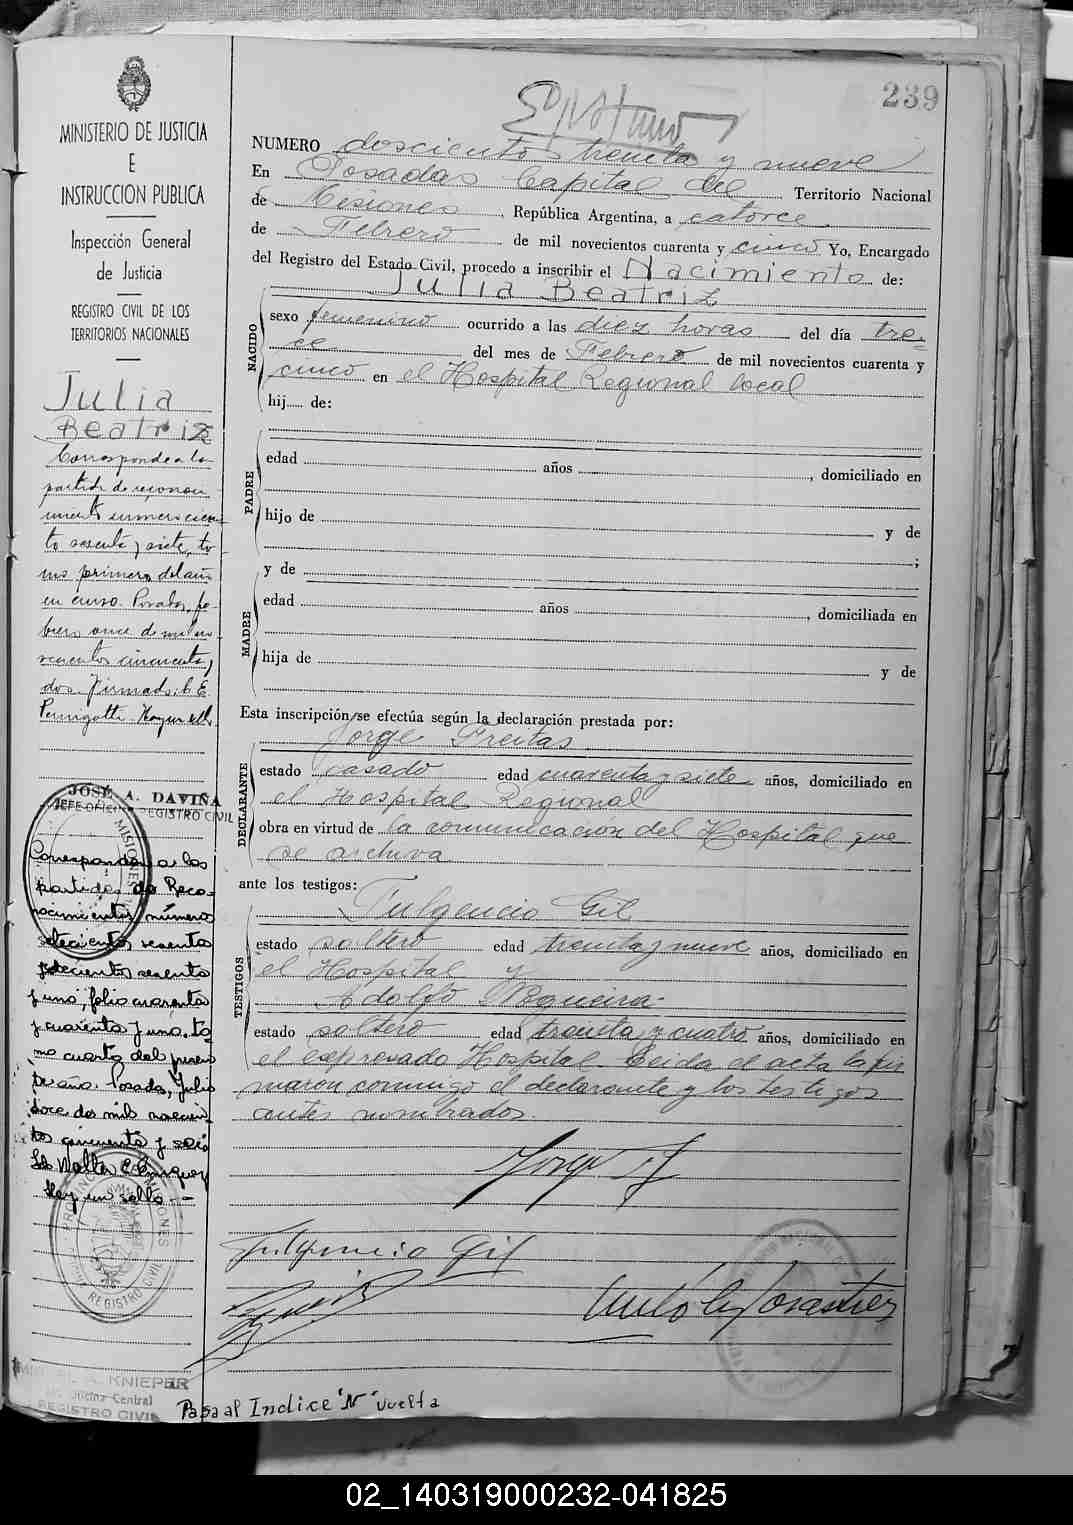 239
MINISTERIO DE JUSTICIA
E
INSTRUCCION PUBLICA
Inspección General
de Justicia
REGISTRO CIVIL DE LOS
TERRITORIOS NACIONALES
Julia
Beatriz
Corresponde a la
partida de reconoci
miento número cien
to sesenta y siete, to
mo primero del año
en curso. Posadas, fe-
brero once de mil no
vecientos cincuenta y
dos. Firmado: C. E.
JOSÉ A. DAVIÑA
JEFE OFICINA REGISTRO CIVIL
Corresponden a las
partidas de Reco-
nocimientos número
setecientos sesenta
setecientos sesenta
y uno, folio cuarenta
y cuarenta y uno, to
mo cuarto del presen
te año. Posadas, Julio
doce de mil novecien
tos cincuenta y seis
Hay un sello.-
PROVINCIA DE MISIONES
REGISTRO CIVIL
KNIEPER
Oficina Central
REGISTRO CIVIL
NUMERO doscientos treinta y nueve
En Posadas Capital del Territorio Nacional
de Misiones, República Argentina, a catorce
de Febrero de mil novecientos cuarenta y cinco Yo, Encargado
del Registro del Estado Civil, procedo a inscribir el Nacimiento de:
Julia Beatriz
NACIDO
sexo femenino ocurrido a las diez horas del día tre-
ce del mes de Febrero de mil novecientos cuarenta y
cinco en el Hospital Regional local
hij..... de:
PADRE
edad años , domiciliado en
hijo de y de
;
y de
MADRE
edad años , domiciliada en
hija de y de
Esta inscripción se efectúa según la declaración prestada por:
Jorge Freitas
DECLARANTE
estado casado edad cuarenta y siete años, domiciliado en
el Hospital Regional
obra en virtud de la comunicación del Hospital que
se archiva
ante los testigos:
Fulgencio Gil
TESTIGOS
estado soltero edad treinta y nueve años, domiciliado en
el Hospital y
Adolfo Nogueira
estado soltero edad treinta y cuatro años, domiciliado en
el expresado Hospital. Leida el acta la fir
maron conmigo el declarante y los testigos
antes nombrados.
Fulgencio Gil
Pasa al Indice "N" vuelta
02_140319000232-041825